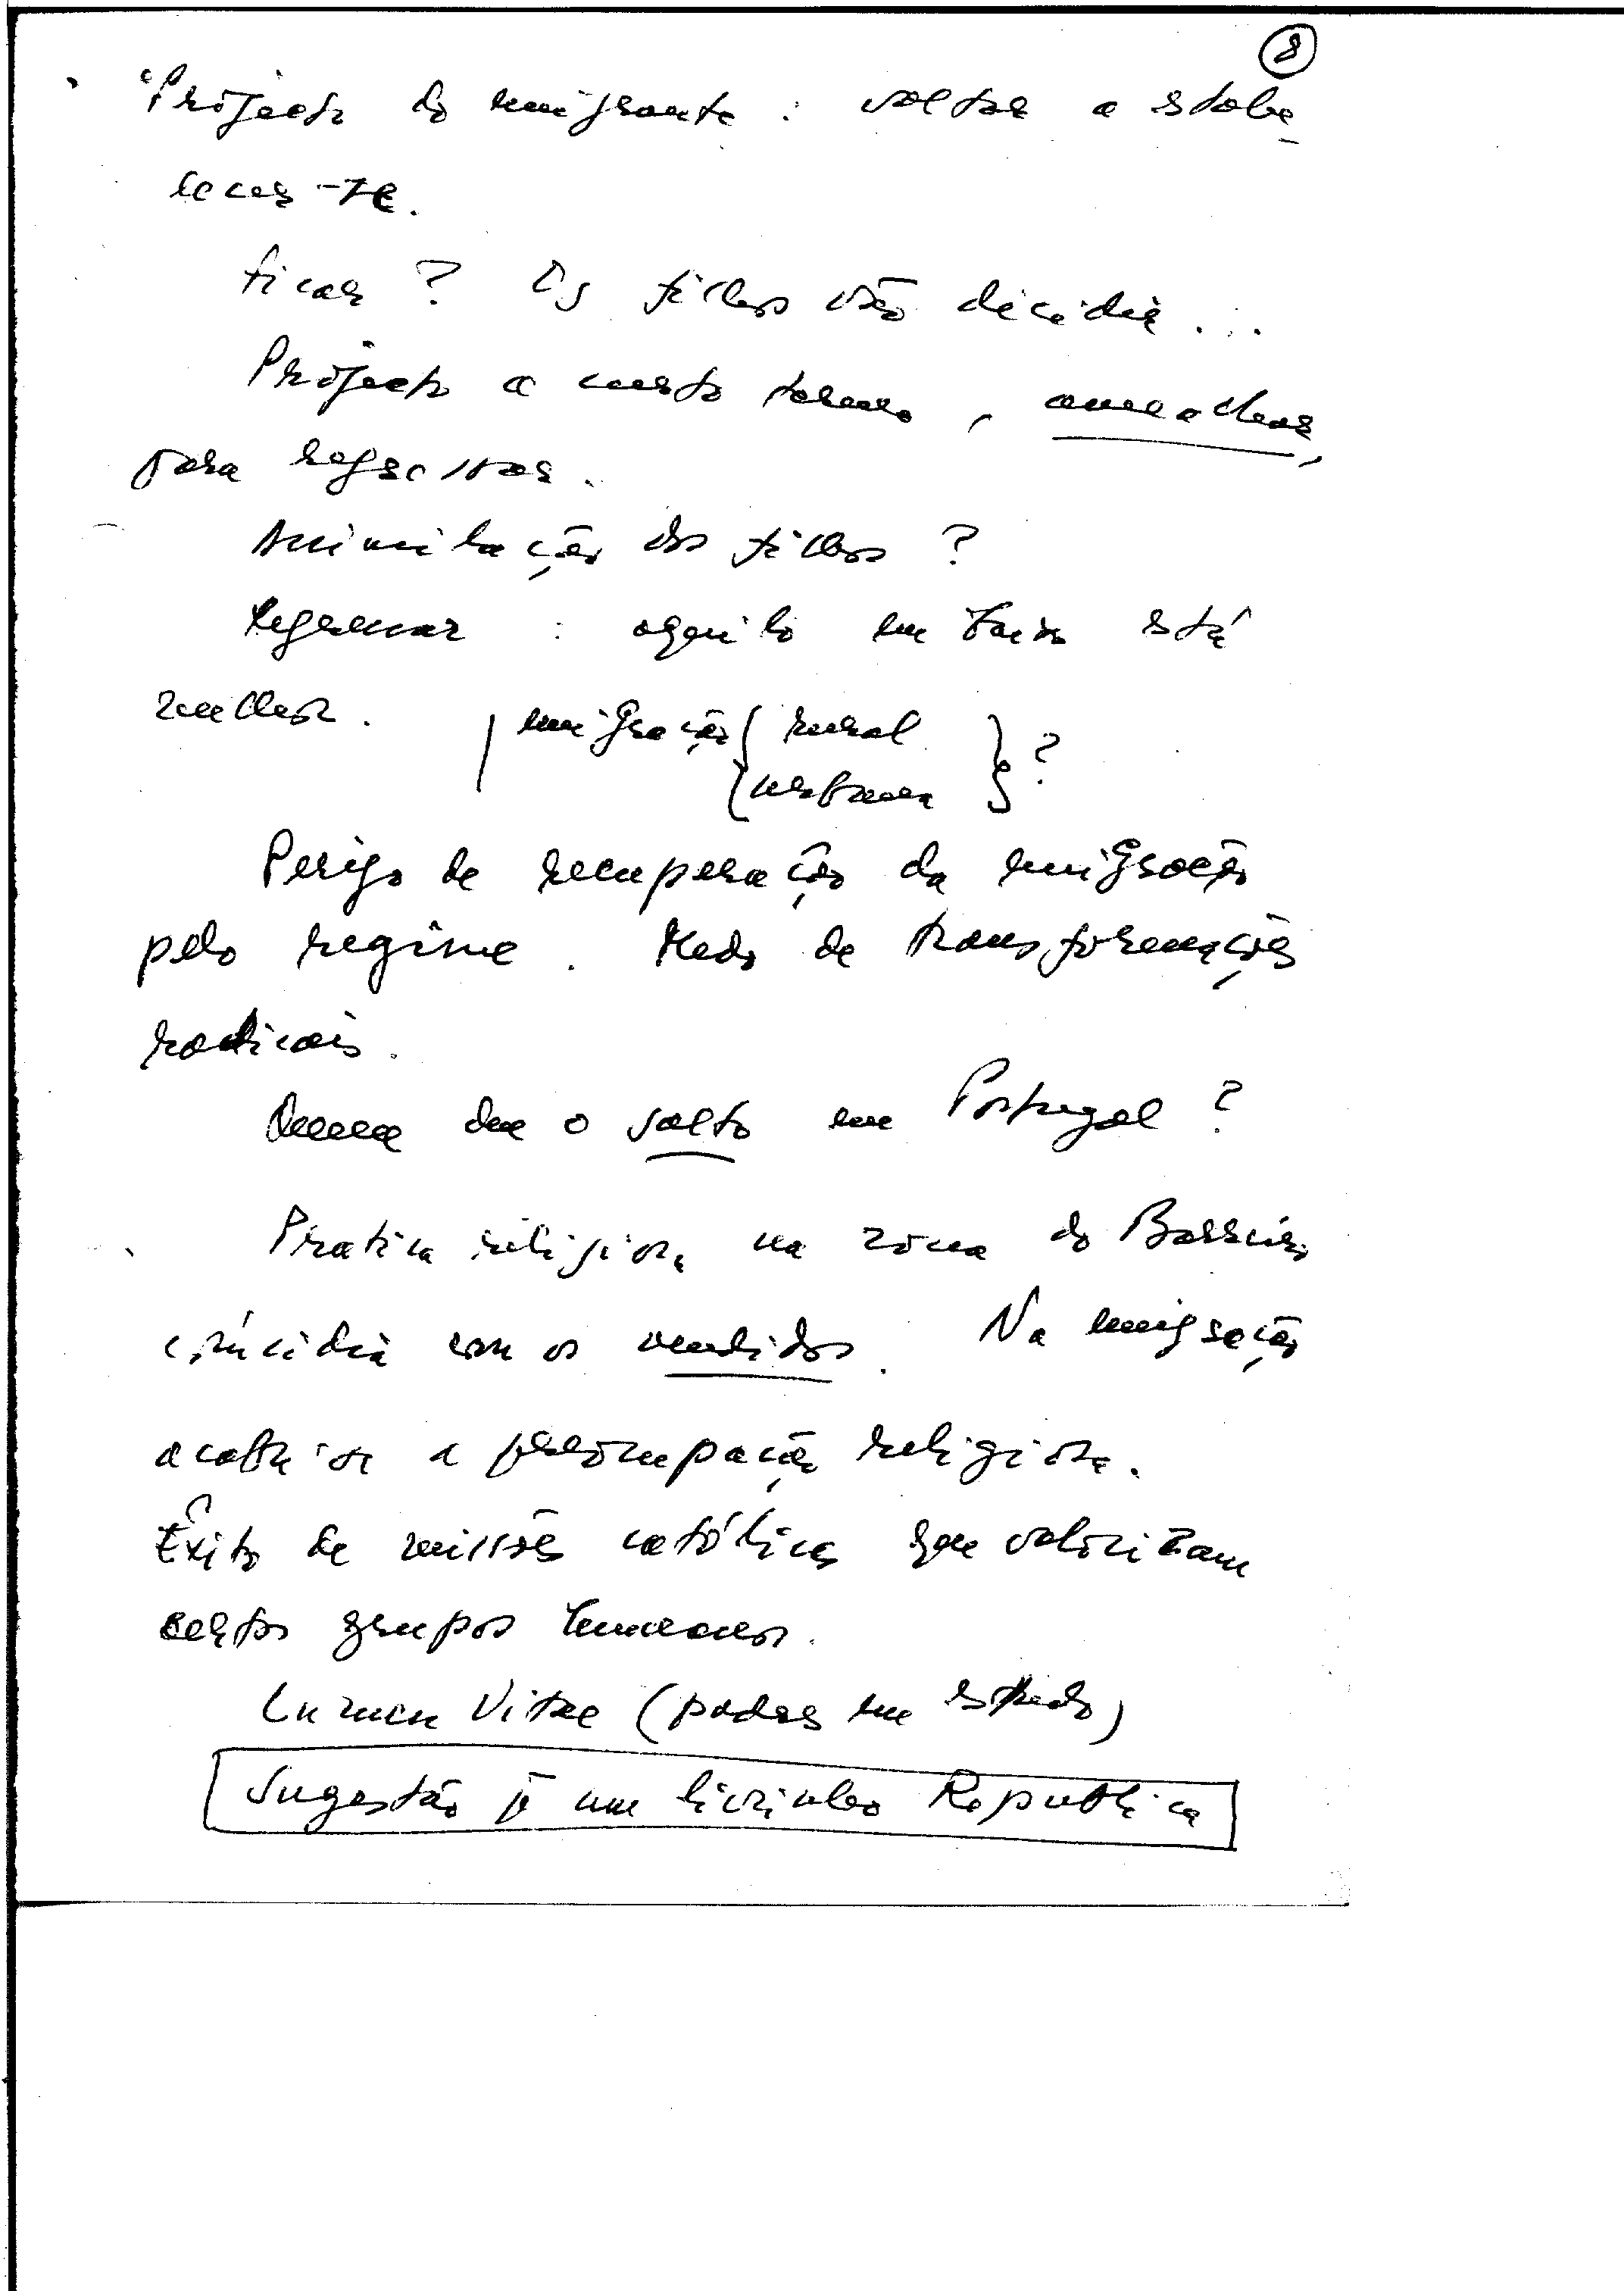 8
Projecto do emigrante : voltar a estabe
lecer-se.
Ficar ? Os filhos vão decidir...
Projecto a curto termo, amealhar,
para regressar.
Assimilação dos filhos ?
Regressar : aquilo em baixo está
melhor. emigração rural ?
urbana
Perigo de recuperação da emigração
pelo regime. Medo de transformações
radicais.
Quem deu o salto em Portugal ?
Pratica religiosa na zona do Barreiro
coincidia com os vendidos. Na emigração
acaba-se a preocupação religiosa.
Êxito de missões católicas que valorizam
certos grupos humanos.
Lumen Vitae (padres em estudo)
Sugestão p um livrinho Republica